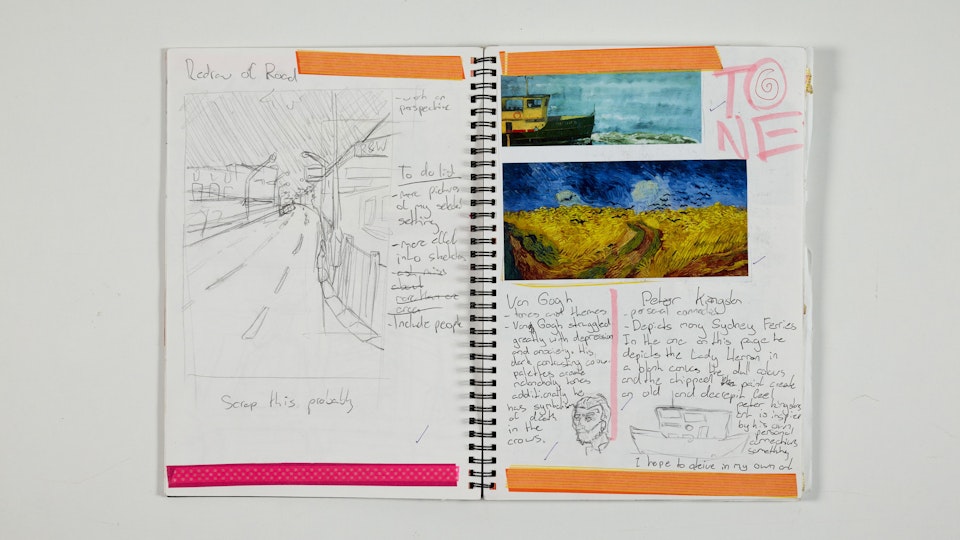 Redraw of Road
- work on
perspective
To do list
- more pictures
of my
setting
- more effort
into sketches
more than one
area
- Include people
Scrap this probably
TONE
Van Gogh
- tones and themes
- Van Gogh struggled
greatly with depression
and anxiety. His
dark contrasting colour
palettes create
melancholy tones
additionally he
has symbolism
of death
in the
crows.
Peter Kingston
- personal connection
- Depicts many Sydney Ferries
In the one on this page he
depicts the Lady Herron in
a bleak the dull colours
and the chipped paint create
an old and decrepit feel
Peter Kingstons
art is inspired
by his own
personal
connections
something
I hope to delve in my own art